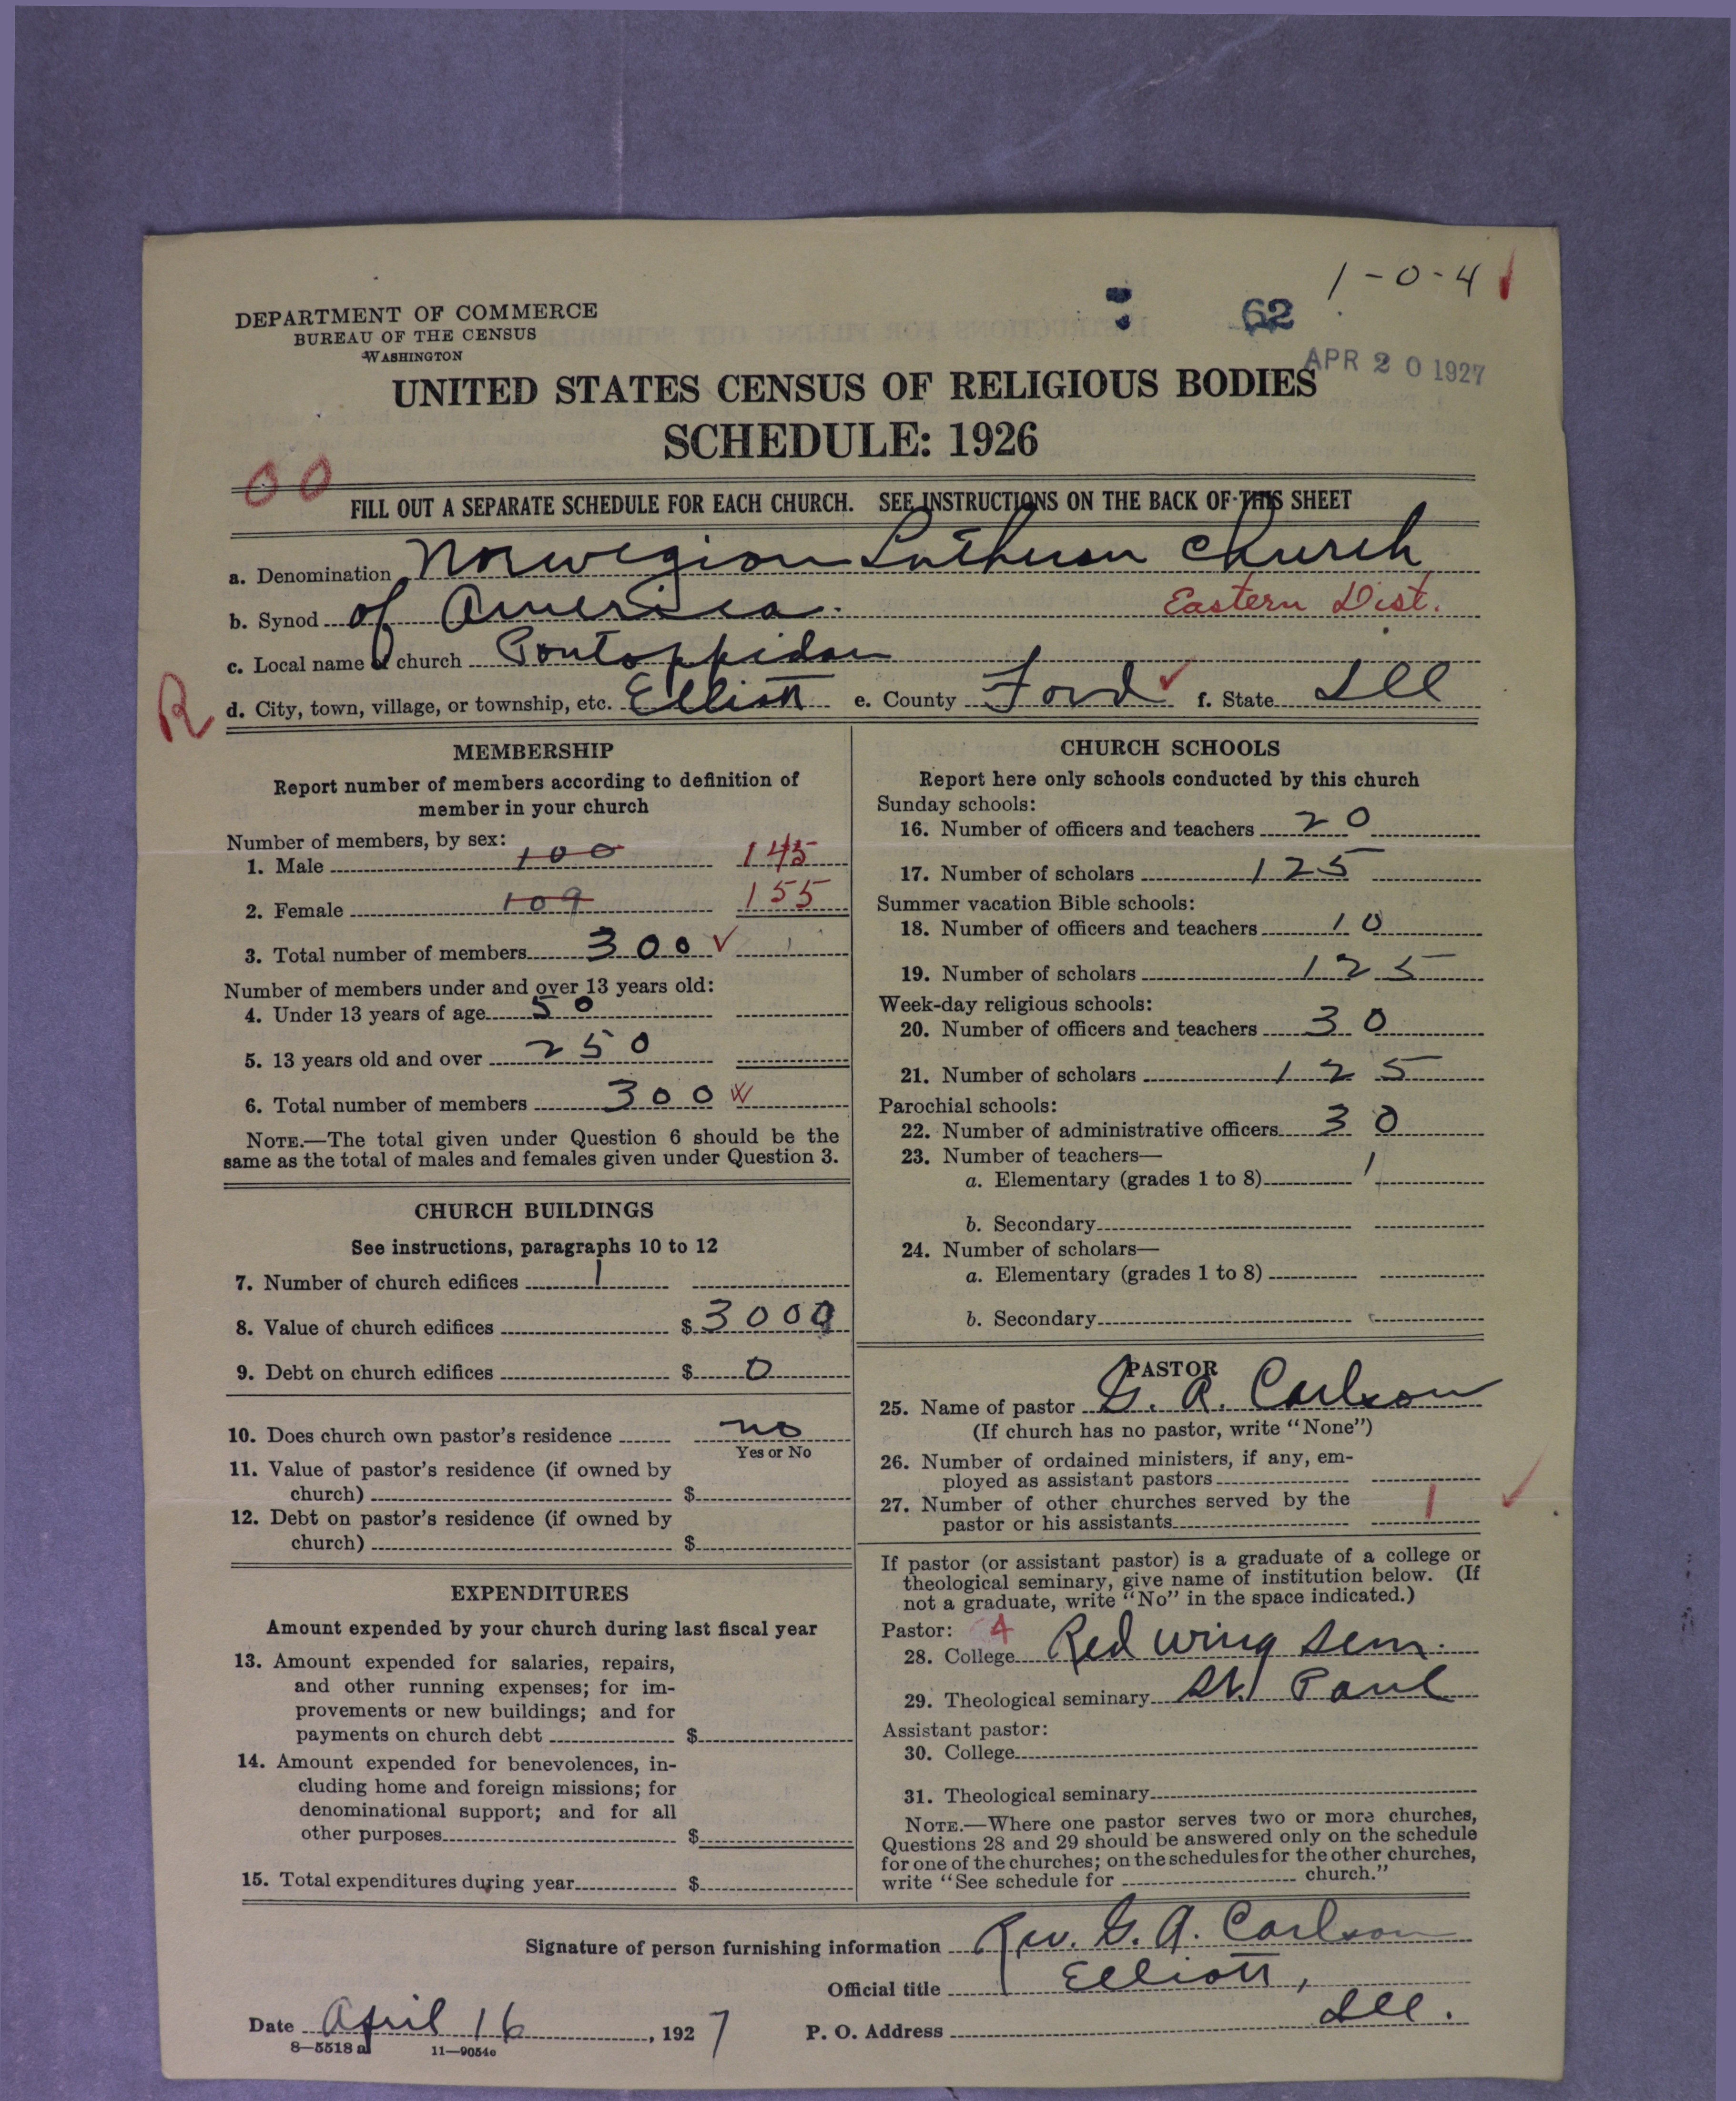 1-0-4
DEPARTMENT OF COMMERCE
BUREAU OF THE CENSUS
WASHINGTON
62
APR 20 1927
UNITED STATES CENSUS OF RELIGIOUS BODIES
SCHEDULE: 1926
00
FILL OUT A SEPARATE SCHEDULE FOR EACH CHURCH. SEE INSTRUCTIONS ON THE BACK OF THIS SHEET
a. Denomination Norwegian Lutheran Church
b. Synod of America. Eastern Dist.
c. Local name of church Pontoppidan
R
d. City, town, village, or township, etc. Elliott e. County Ford f. State Ill
MEMBERSHIP
Report number of members according to definition of
member in your church
Number of members, by sex:
1. Male 100 145
2. Female 109 155
3. Total number of members 300
Number of members under and over 13 years old:
4. Under 13 years of age 50
5. 13 years old and over 250
6. Total number of members 300
NOTE.—The total given under Question 6 should be the
same as the total of males and females given under Question 3.
CHURCH BUILDINGS
See instructions, paragraphs 10 to 12
7. Number of church edifices 1
8. Value of church edifices $ 3000
9. Debt on church edifices $ 0
10. Does church own pastor's residence no
Yes or No
11. Value of pastor's residence (if owned by
church) $
12. Debt on pastor's residence (if owned by
church) $
EXPENDITURES
Amount expended by your church during last fiscal year
13. Amount expended for salaries, repairs,
and other running expenses; for im-
provements or new buildings; and for
payments on church debt $
14. Amount expended for benevolences, in-
cluding home and foreign missions; for
denominational support; and for all
other purposes $
15. Total expenditures during year $
CHURCH SCHOOLS
Report here only schools conducted by this church
Sunday schools:
16. Number of officers and teachers 20
17. Number of scholars 125
Summer vacation Bible schools:
18. Number of officers and teachers 10
19. Number of scholars 125
Week-day religious schools:
20. Number of officers and teachers 30
21. Number of scholars 125
Parochial schools:
22. Number of administrative officers 30
23. Number of teachers—
a. Elementary (grades 1 to 8) 1
b. Secondary
24. Number of scholars—
a. Elementary (grades 1 to 8)
b. Secondary
PASTOR
25. Name of pastor G. A. Carlson
(If church has no pastor, write "None")
26. Number of ordained ministers, if any, em-
ployed as assistant pastors
27. Number of other churches served by the
pastor or his assistants 1
If pastor (or assistant pastor) is a graduate of a college or
theological seminary, give name of institution below. (If
not a graduate, write "No" in the space indicated.)
Pastor: 4
28. College Red Wing Sem.
29. Theological seminary St. Paul
Assistant pastor:
30. College
31. Theological seminary
NOTE.—Where one pastor serves two or more churches,
Questions 28 and 29 should be answered only on the schedule
for one of the churches; on the schedules for the other churches,
write "See schedule for church."
Signature of person furnishing information Rev. G. A. Carlson
Official title Elliott,
Date April 16, 1927 P. O. Address Ill.
8—5518 a 11—9054c